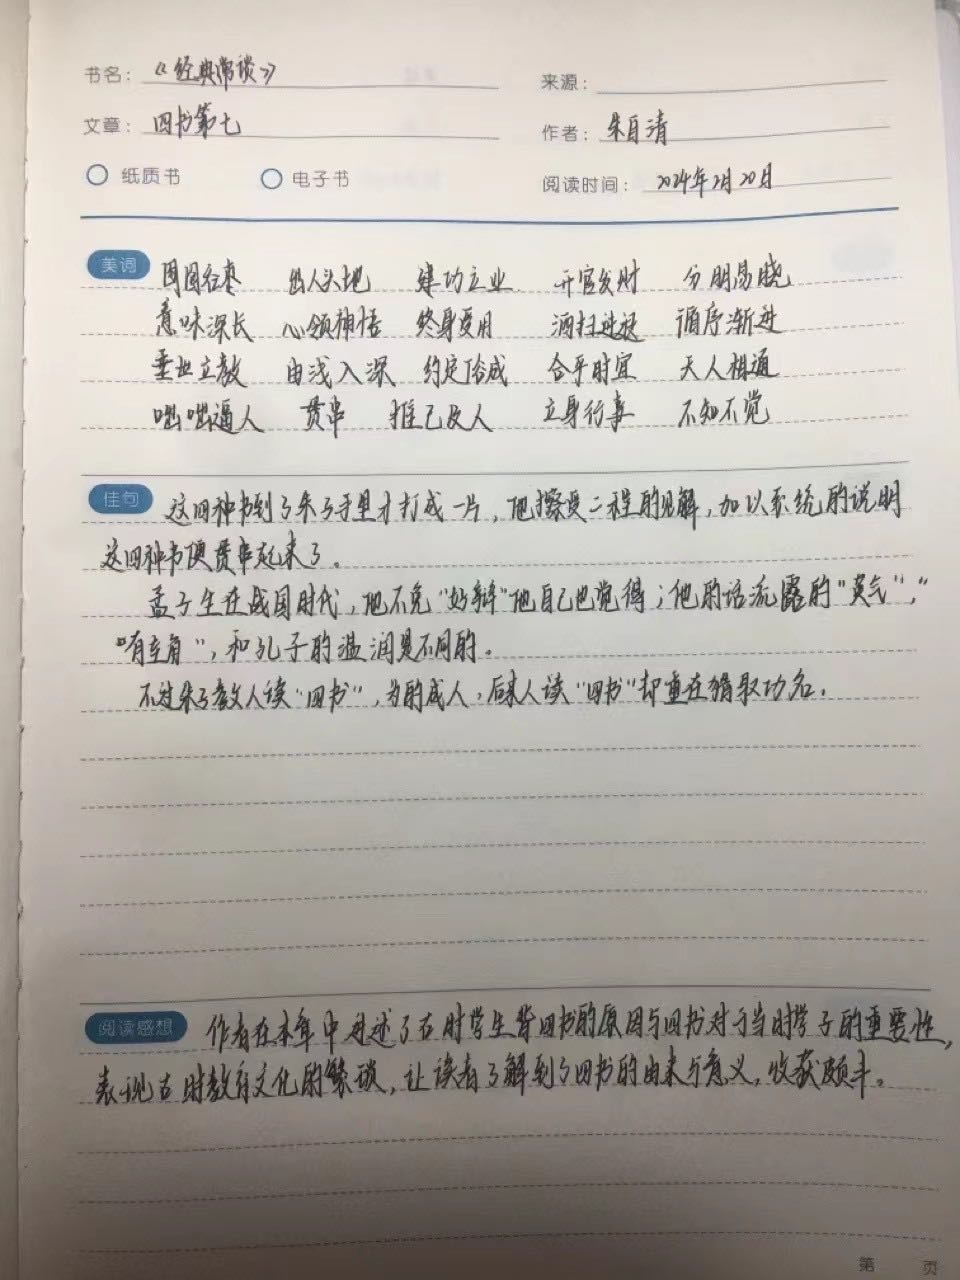 书名：《经典常谈》 来源：
文章：四书第七 作者：朱自清
纸质书 电子书 阅读时间：2024年2月20日
美词 囫囵吞枣 出人头地 建功立业 升官发财 分明易晓
意味深长 心领神悟 终身受用 洒扫进退 循序渐进
垂世立教 由浅入深 约定俗成 合乎时宜 天人相通
咄咄逼人 贯串 推己及人 立身行事 不知不觉
佳句 这四种书到了朱子手里才打成一片，他接受二程的见解，加以系统的说明
这四种书便贯串起来了。
孟子生在战国时代，他不免“好辩”他自己也觉得；他的话流露的“英气”，
“有圭角”，和孔子的温润是不同的。
不过朱子教人读“四书”，为的成人，后来人读“四书”却重在猎取功名。
阅读感想 作者在本章中 了古时学生背四书的原因与四书对于当时学子的重要性，
表现古时教育文化的繁琐，让读者了解到了四书的由来与意义，收获颇丰。
第 页